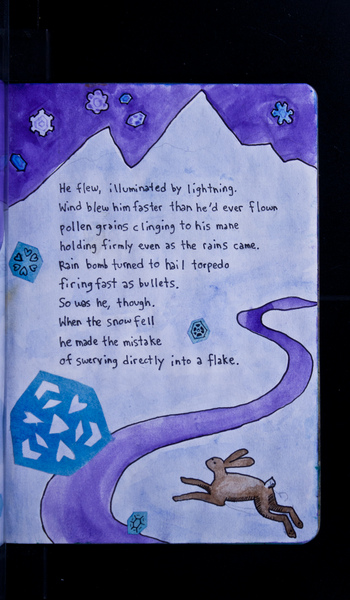 He flew, illuminated by lightning.
Wind blew him faster than he'd ever flown
pollen grains clinging to his mane
holding firmly even as the rains came.
Rain bomb turned to hail torpedo
firing fast as bullets.
So was he, though.
When the snow fell
he made the mistake
of swerving directly into a flake.